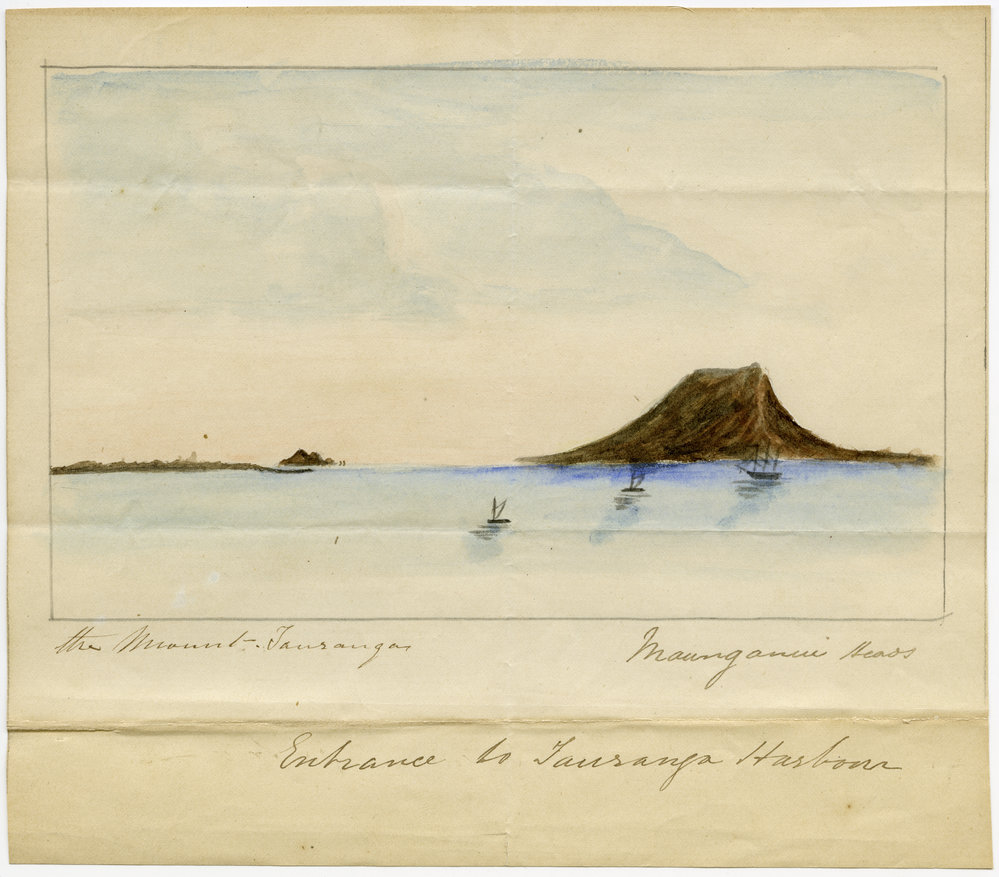 the Mount - Tauranga
Maunganui Heads
Entrance to Tauranga Harbour